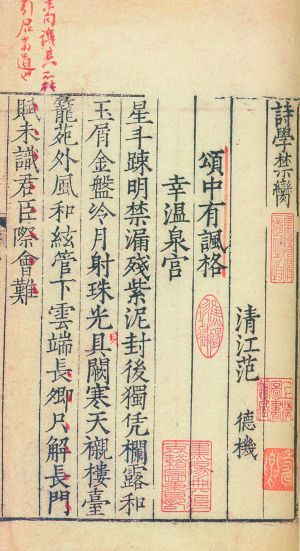 詩學禁臠
清江范 德機
頌中有諷格
幸溫泉宮
星斗踈明禁漏殘紫泥封後獨凭欄露和
玉屑金盤冷月射珠光具闕寒天襯樓臺
籠苑外風和絃管下雲端長卿只解長門
賦未識君臣際會難